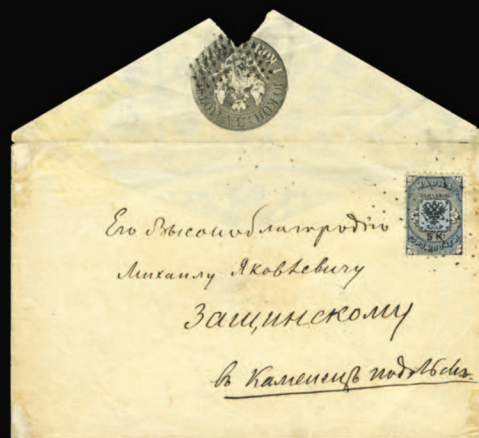 10 КОП.
МАРКА
5 К.
Его Высокоблагородію
Михаилу Яковлевичу
Защинскому
въ Каменецъ подольскъ.